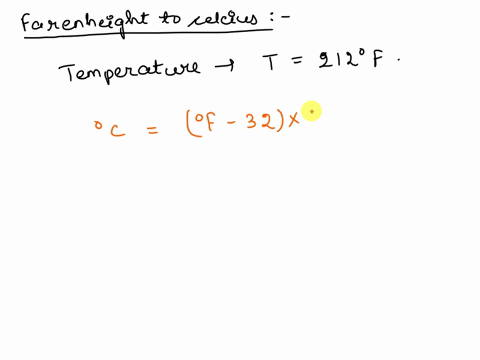 Farenheight to celcius :-
Temperature → T = 212° F .
°C = (°F - 32) x